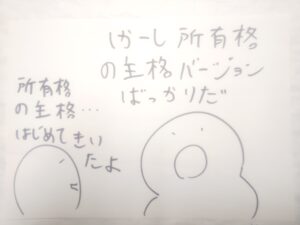 しかーし所有格
の主格バージョン
ばっかりだ
所有格
の主格…
はじめてきい
たよ